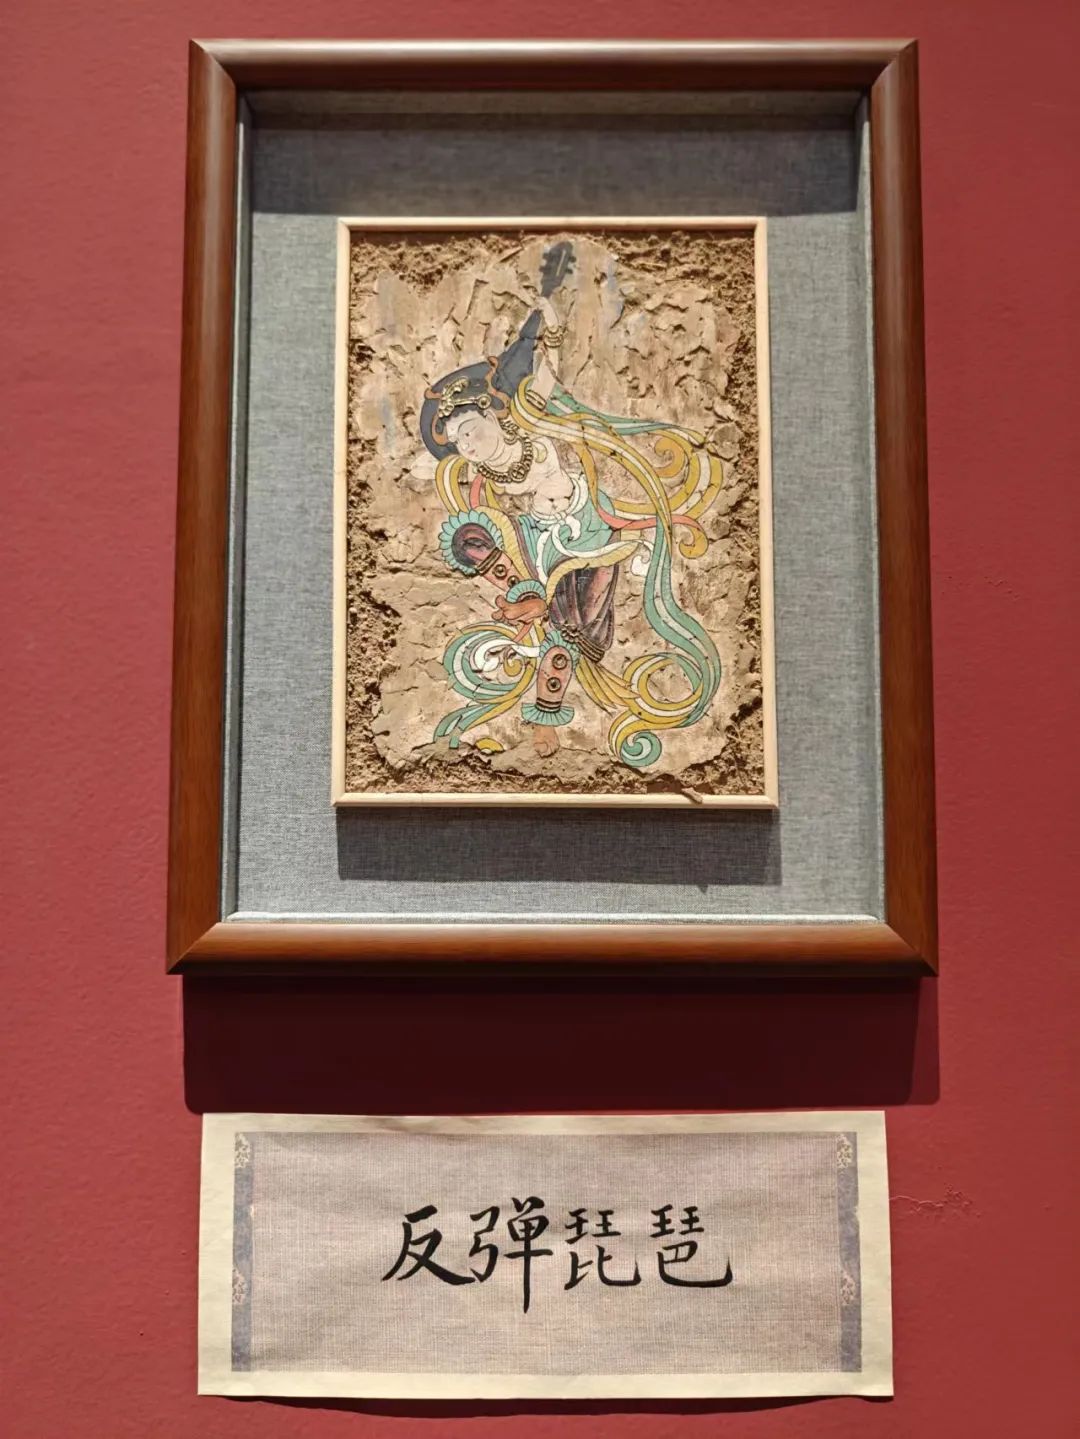 反弹琵琶